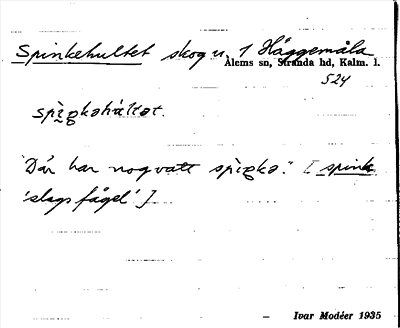 Spinkehultet skog u. 1 Häggemåla
Ålems sn, Stranda hd, Kalm. l.
524
spìŋkəhúltət.
"Där har nog vatt spìŋkə." [spink
'slags fågel']
– Ivar Modéer 1935